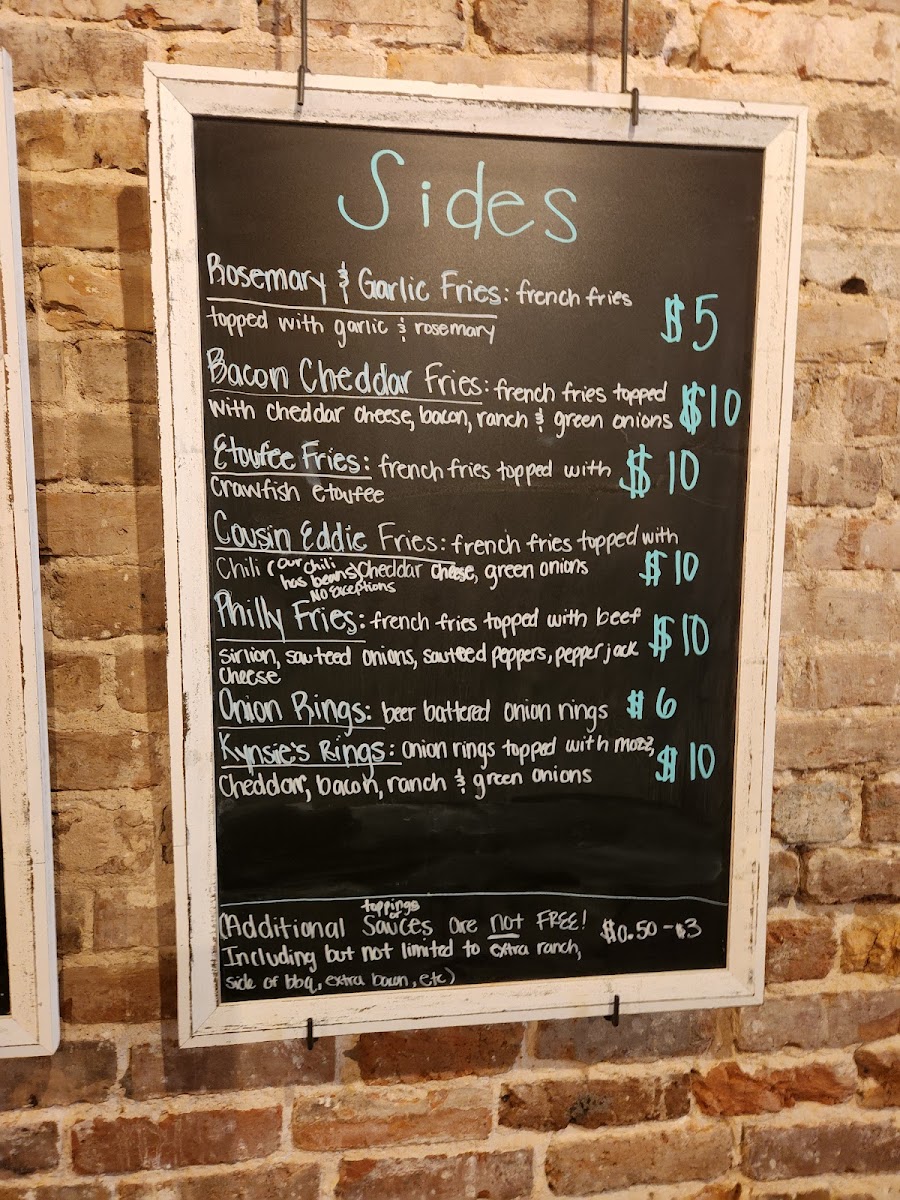 Sides
Rosemary & Garlic Fries: french fries $5
topped with garlic & rosemary
Bacon Cheddar Fries: french fries topped $10
with cheddar cheese, bacon, ranch & green onions
Etoufee Fries: french fries topped with $10
crawfish etoufee
Cousin Eddie Fries: french fries topped with
Chili (our chili has beans) cheddar cheese, green onions $10
NO exceptions
Philly Fries: french fries topped with beef $10
sirlion, sauteed onions, sauteed peppers, pepper jack
cheese
Onion Rings: beer battered onion rings $6
Kynsie's Rings: onion rings topped with mozz, $10
Cheddar, bacon, ranch & green onions
(Additional toppings or Sauces are not FREE! $0.50 - $3
Including but not limited to extra ranch,
side of bbq, extra bacon, etc)